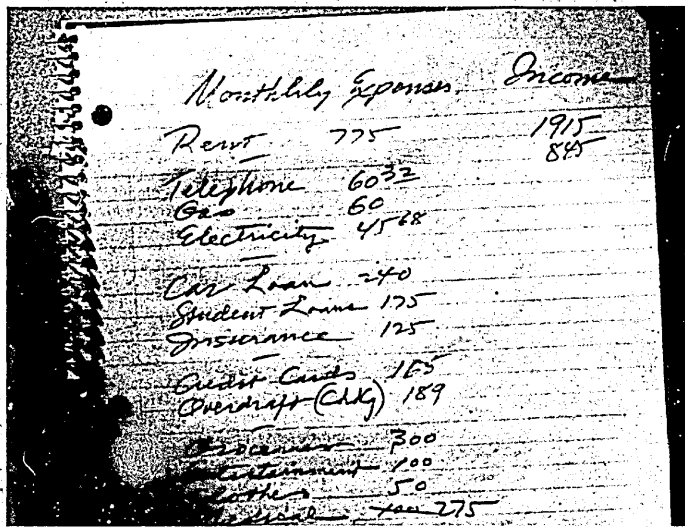 Monthlily Expenses. Income
Rent 775 1915
845
Telephone 60 32
Gas 60
Electricity 45 68
Car Loan 240
Student Loans 175
Insurance 125
Credit Cards 165
Overdraft (Chkg) 189
Groceries 300
Entertainment 100
Clothes 50
275